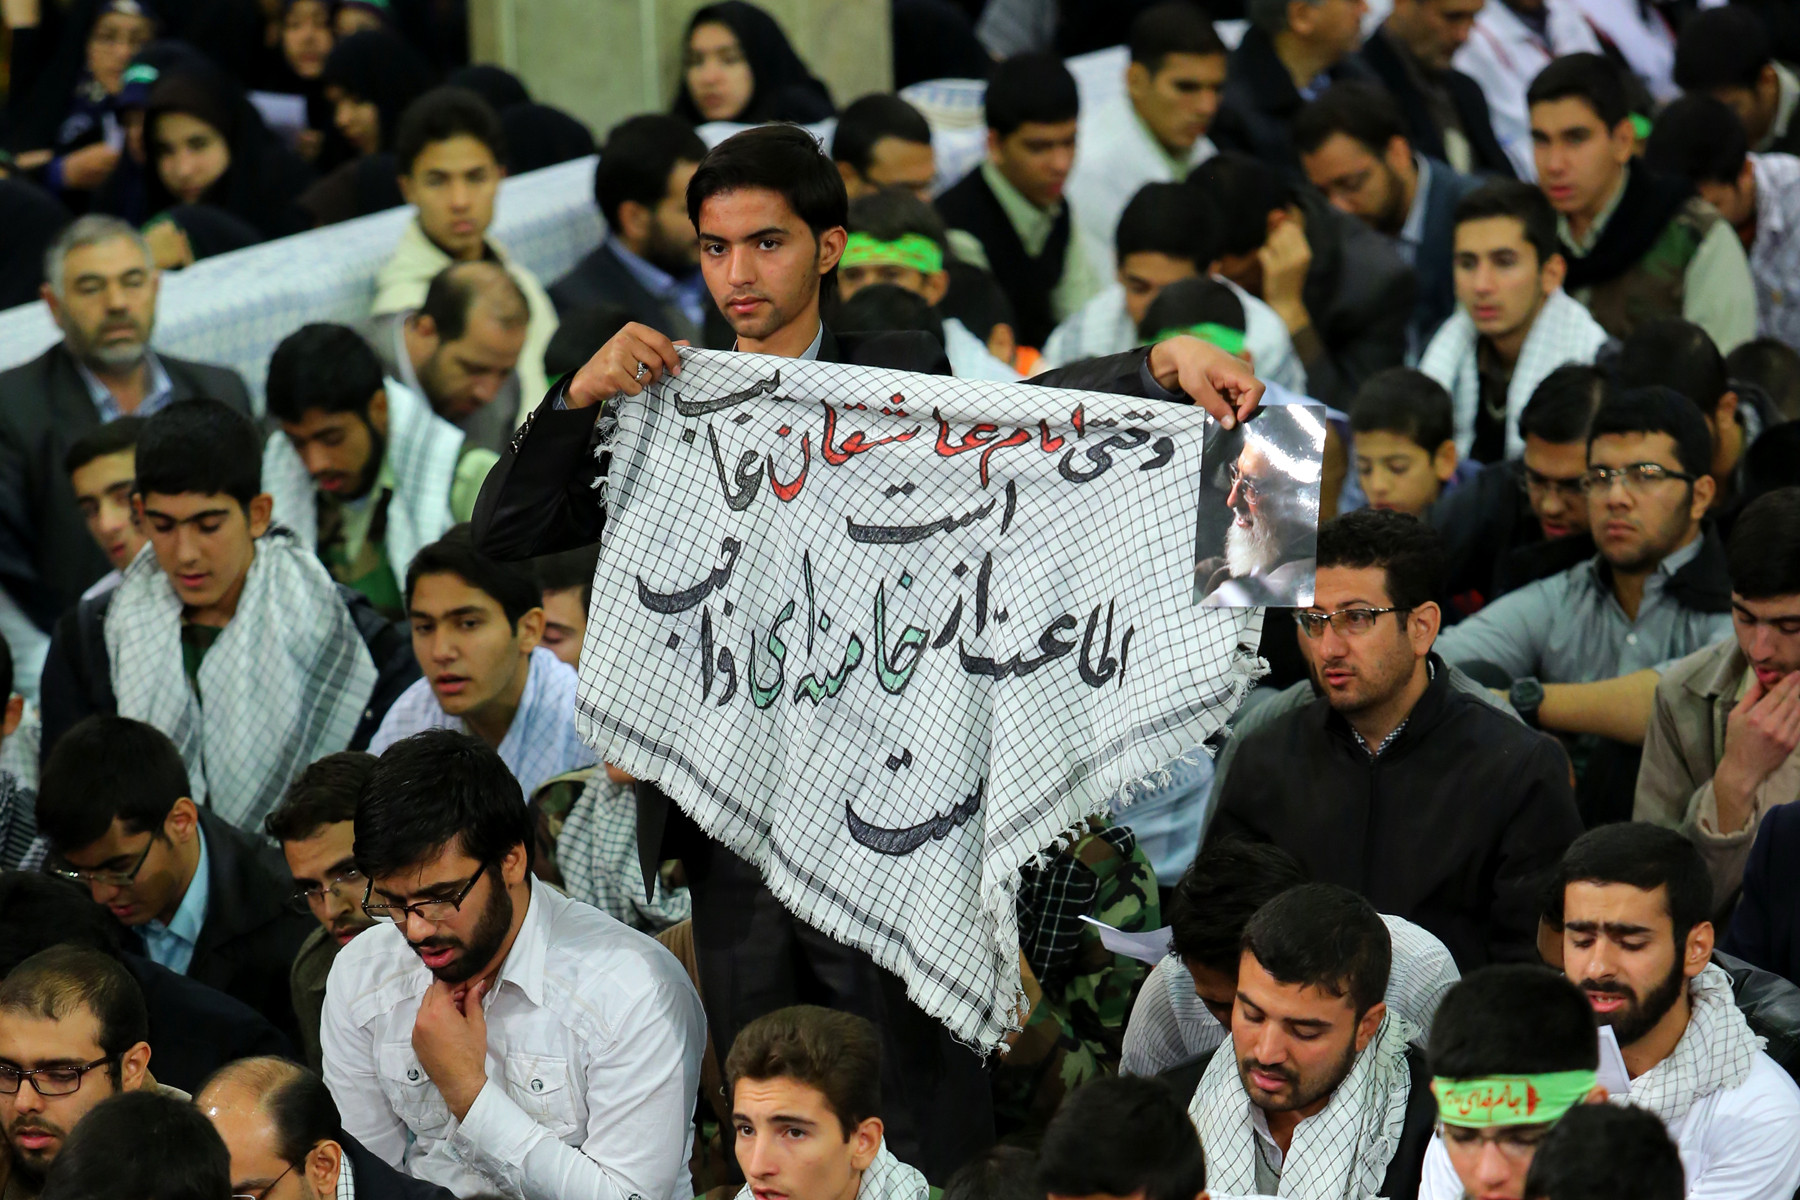 وقتی امام عاشقان غایب
است
اطاعت از خامنه‌ای واجب
ست
جانم فدای رهبر